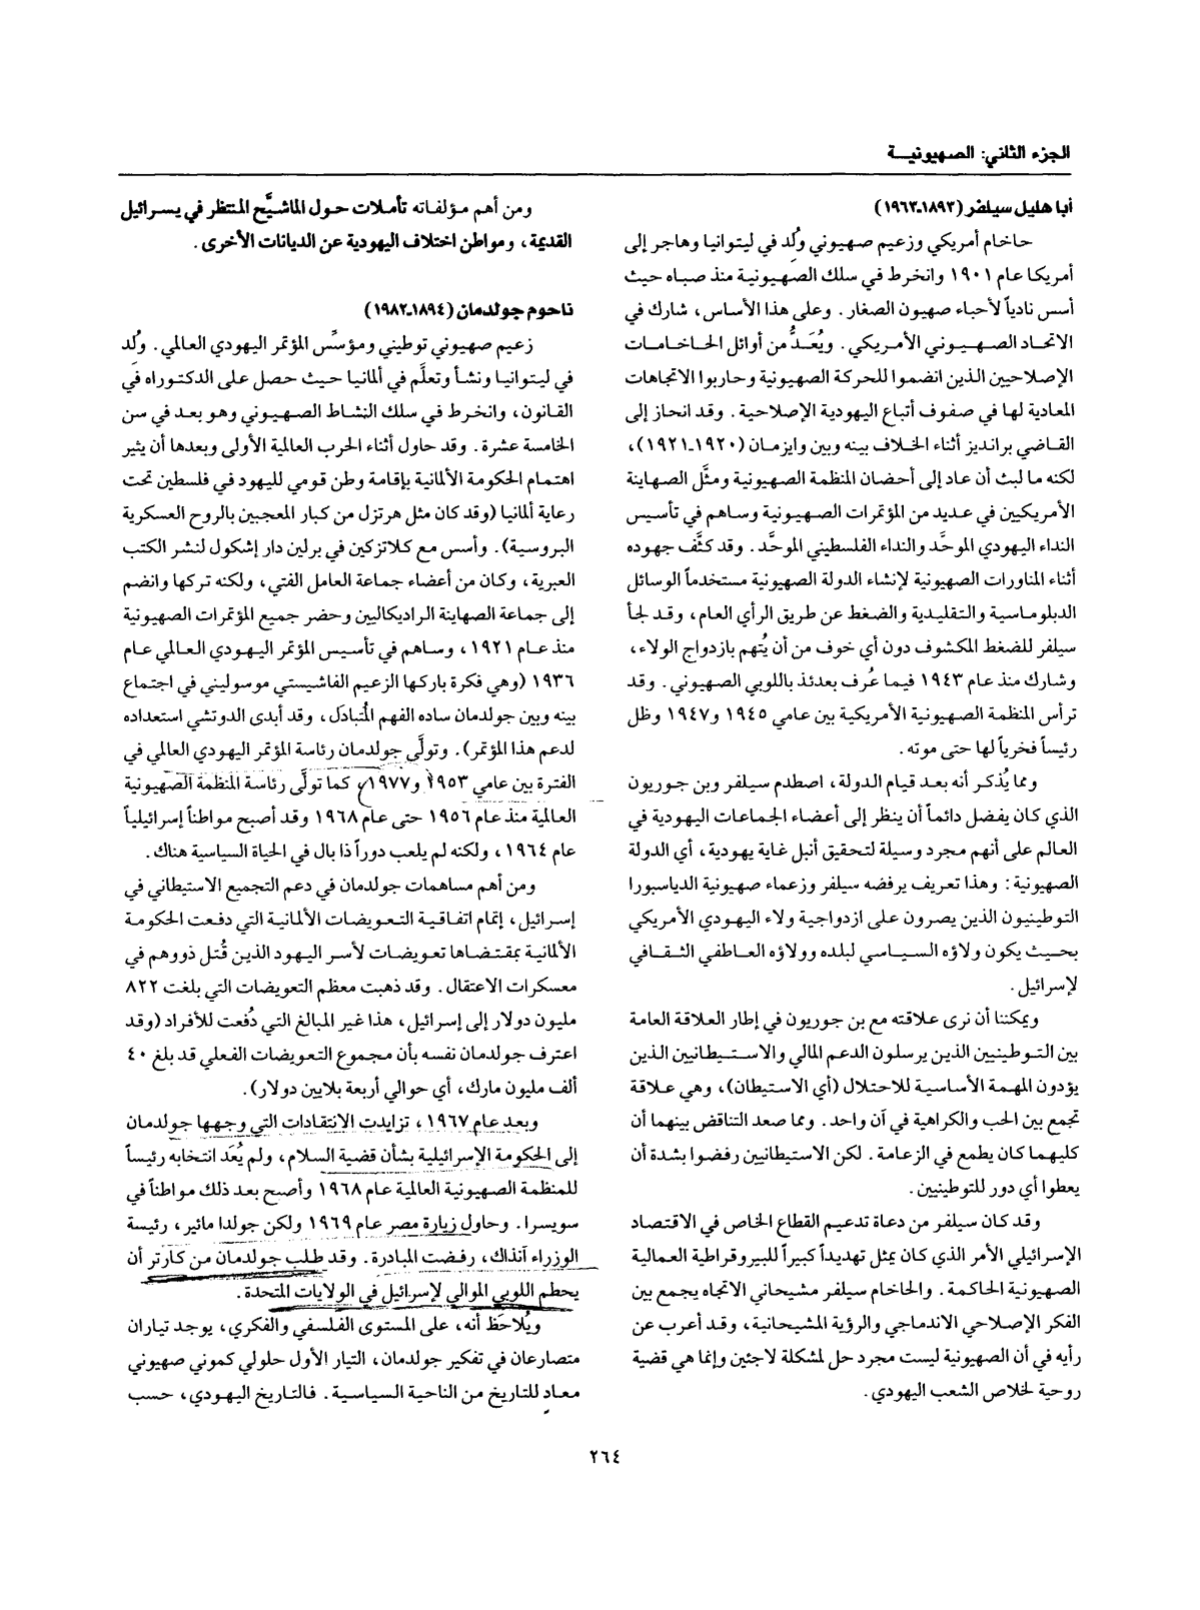 الجزء الثاني: الصهيونية
أبا هليل سيلفر (١٨٩٣ـ١٩٦٣)
حاخام أمريكي وزعيم صهيوني وُلِد في ليتوانيا وهاجر إلى
أمريكا عام ١٩٠١ وانخرط في سلك الصهيونية منذ صباه حيث
أسس نادياً لأحباء صهيون الصغار. وعلى هذا الأساس، شارك في
الاتحاد الصهيوني الأمريكي. ويُعَدُّ من أوائل الحاخامات
الإصلاحيين الذين انضموا للحركة الصهيونية وحاربوا الاتجاهات
المعادية لها في صفوف أتباع اليهودية الإصلاحية. وقد انحاز إلى
القاضي برانديز أثناء الخلاف بينه وبين وايزمان (١٩٢٠ـ١٩٢١)،
لكنه ما لبث أن عاد إلى أحضان المنظمة الصهيونية ومثَّل الصهاينة
الأمريكيين في عديد من المؤتمرات الصهيونية وساهم في تأسيس
النداء اليهودي الموحَّد والنداء الفلسطيني الموحَّد. وقد كثَّف جهوده
أثناء المناورات الصهيونية لإنشاء الدولة الصهيونية مستخدماً الوسائل
الدبلوماسية والتقليدية والضغط عن طريق الرأي العام، وقد لجأ
سيلفر للضغط المكشوف دون أي خوف من أن يُتهم بازدواج الولاء،
وشارك منذ عام ١٩٤٣ فيما عُرف بعدئذ باللوبي الصهيوني. وقد
ترأس المنظمة الصهيونية الأمريكية بين عامي ١٩٤٥ و١٩٤٧ وظل
رئيساً فخرياً لها حتى موته.
ومما يُذكر أنه بعد قيام الدولة، اصطدم سيلفر وبن جوريون
الذي كان يفضل دائماً أن ينظر إلى أعضاء الجماعات اليهودية في
العالم على أنهم مجرد وسيلة لتحقيق أنبل غاية يهودية، أي الدولة
الصهيونية: وهذا تعريف يرفضه سيلفر وزعماء صهيونية الدياسبورا
التوطينيون الذين يصرون على ازدواجية ولاء اليهودي الأمريكي
بحيث يكون ولاؤه السياسي لبلده وولاؤه العاطفي الثقافي
لإسرائيل.
ويمكننا أن نرى علاقته مع بن جوريون في إطار العلاقة العامة
بين التوطينيين الذين يرسلون الدعم المالي والاستيطانيين الذين
يؤدون المهمة الأساسية للاحتلال (أي الاستيطان)، وهي علاقة
تجمع بين الحب والكراهية في آن واحد. ومما صعد التناقض بينهما أن
كليهما كان يطمع في الزعامة. لكن الاستيطانيين رفضوا بشدة أن
يعطوا أي دور للتوطينيين.
وقد كان سيلفر من دعاة تدعيم القطاع الخاص في الاقتصاد
الإسرائيلي الأمر الذي كان يمثل تهديداً كبيراً للبيروقراطية العمالية
الصهيونية الحاكمة. والحاخام سيلفر مشيحاني الاتجاه يجمع بين
الفكر الإصلاحي الاندماجي والرؤية المشيحانية، وقد أعرب عن
رأيه في أن الصهيونية ليست مجرد حل لمشكلة لاجئين وإنما هي قضية
روحية لخلاص الشعب اليهودي.
ومن أهم مؤلفاته تأملات حول الماشيَّح المنتظر في يسرائيل
القديمة، ومواطن اختلاف اليهودية عن الديانات الأخرى.
ناحوم جولدمان (١٨٩٤ـ١٩٨٢)
زعيم صهيوني توطيني ومؤسِّس المؤتمر اليهودي العالمي. وُلِد
في ليتوانيا ونشأ وتعلَّم في ألمانيا حيث حصل على الدكتوراه في
القانون، وانخرط في سلك النشاط الصهيوني وهو بعد في سن
الخامسة عشرة. وقد حاول أثناء الحرب العالمية الأولى وبعدها أن يثير
اهتمام الحكومة الألمانية بإقامة وطن قومي لليهود في فلسطين تحت
رعاية ألمانيا (وقد كان مثل هرتزل من كبار المعجبين بالروح العسكرية
البروسية). وأسس مع كلاتزكين في برلين دار إشكول لنشر الكتب
العبرية، وكان من أعضاء جماعة العامل الفتي، ولكنه تركها وانضم
إلى جماعة الصهاينة الراديكاليين وحضر جميع المؤتمرات الصهيونية
منذ عام ١٩٢١، وساهم في تأسيس المؤتمر اليهودي العالمي عام
١٩٣٦ (وهي فكرة باركها الزعيم الفاشيستي موسوليني في اجتماع
بينه وبين جولدمان ساده الفهم المُتبادَل، وقد أبدى الدوتشي استعداده
لدعم هذا المؤتمر). وتولَّى جولدمان رئاسة المؤتمر اليهودي العالمي في
الفترة بين عامي ١٩٥٣ و١٩٧٧، كما تولَّى رئاسة المنظمة الصهيونية
العالمية منذ عام ١٩٥٦ حتى عام ١٩٦٨ وقد أصبح مواطناً إسرائيلياً
عام ١٩٦٤، ولكنه لم يلعب دوراً ذا بال في الحياة السياسية هناك.
ومن أهم مساهمات جولدمان في دعم التجميع الاستيطاني في
إسرائيل، إتمام اتفاقية التعويضات الألمانية التي دفعت الحكومة
الألمانية بمقتضاها تعويضات لأسر اليهود الذين قُتل ذووهم في
معسكرات الاعتقال. وقد ذهبت معظم التعويضات التي بلغت ٨٢٢
مليون دولار إلى إسرائيل، هذا غير المبالغ التي دُفعت للأفراد (وقد
اعترف جولدمان نفسه بأن مجموع التعويضات الفعلي قد بلغ ٤٠
ألف مليون مارك، أي حوالي أربعة بلايين دولار).
وبعد عام ١٩٦٧، تزايدت الانتقادات التي وجهها جولدمان
إلى الحكومة الإسرائيلية بشأن قضية السلام، ولم يُعَد انتخابه رئيساً
للمنظمة الصهيونية العالمية عام ١٩٦٨ وأصبح بعد ذلك مواطناً في
سويسرا. وحاول زيارة مصر عام ١٩٦٩ ولكن جولدا مائير، رئيسة
الوزراء آنذاك، رفضت المبادرة. وقد طلب جولدمان من كارتر أن
يحطم اللوبي الموالي لإسرائيل في الولايات المتحدة.
ويُلاحَظ أنه، على المستوى الفلسفي والفكري، يوجد تياران
متصارعان في تفكير جولدمان، التيار الأول حلولي كموني صهيوني
معادٍ للتاريخ من الناحية السياسية. فالتاريخ اليهودي، حسب
٢٦٤